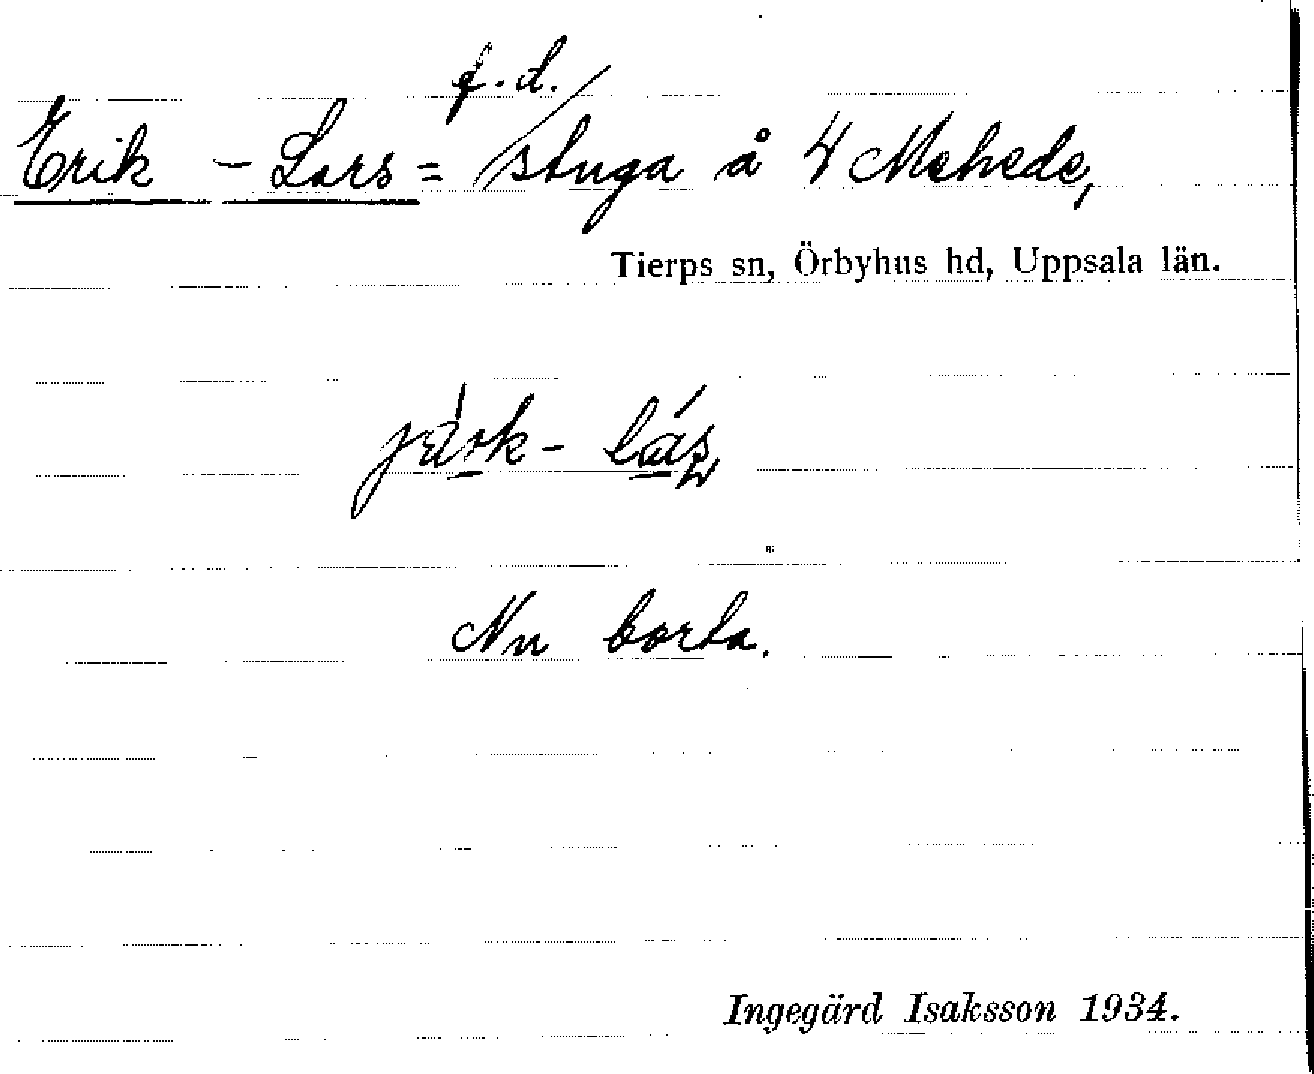 f.d.
Erik - Lars= stuga å 4 Mehede,
Tierps sn, Örbyhus hd, Uppsala län.
Nu borta.
Ingegärd Isaksson 1934.